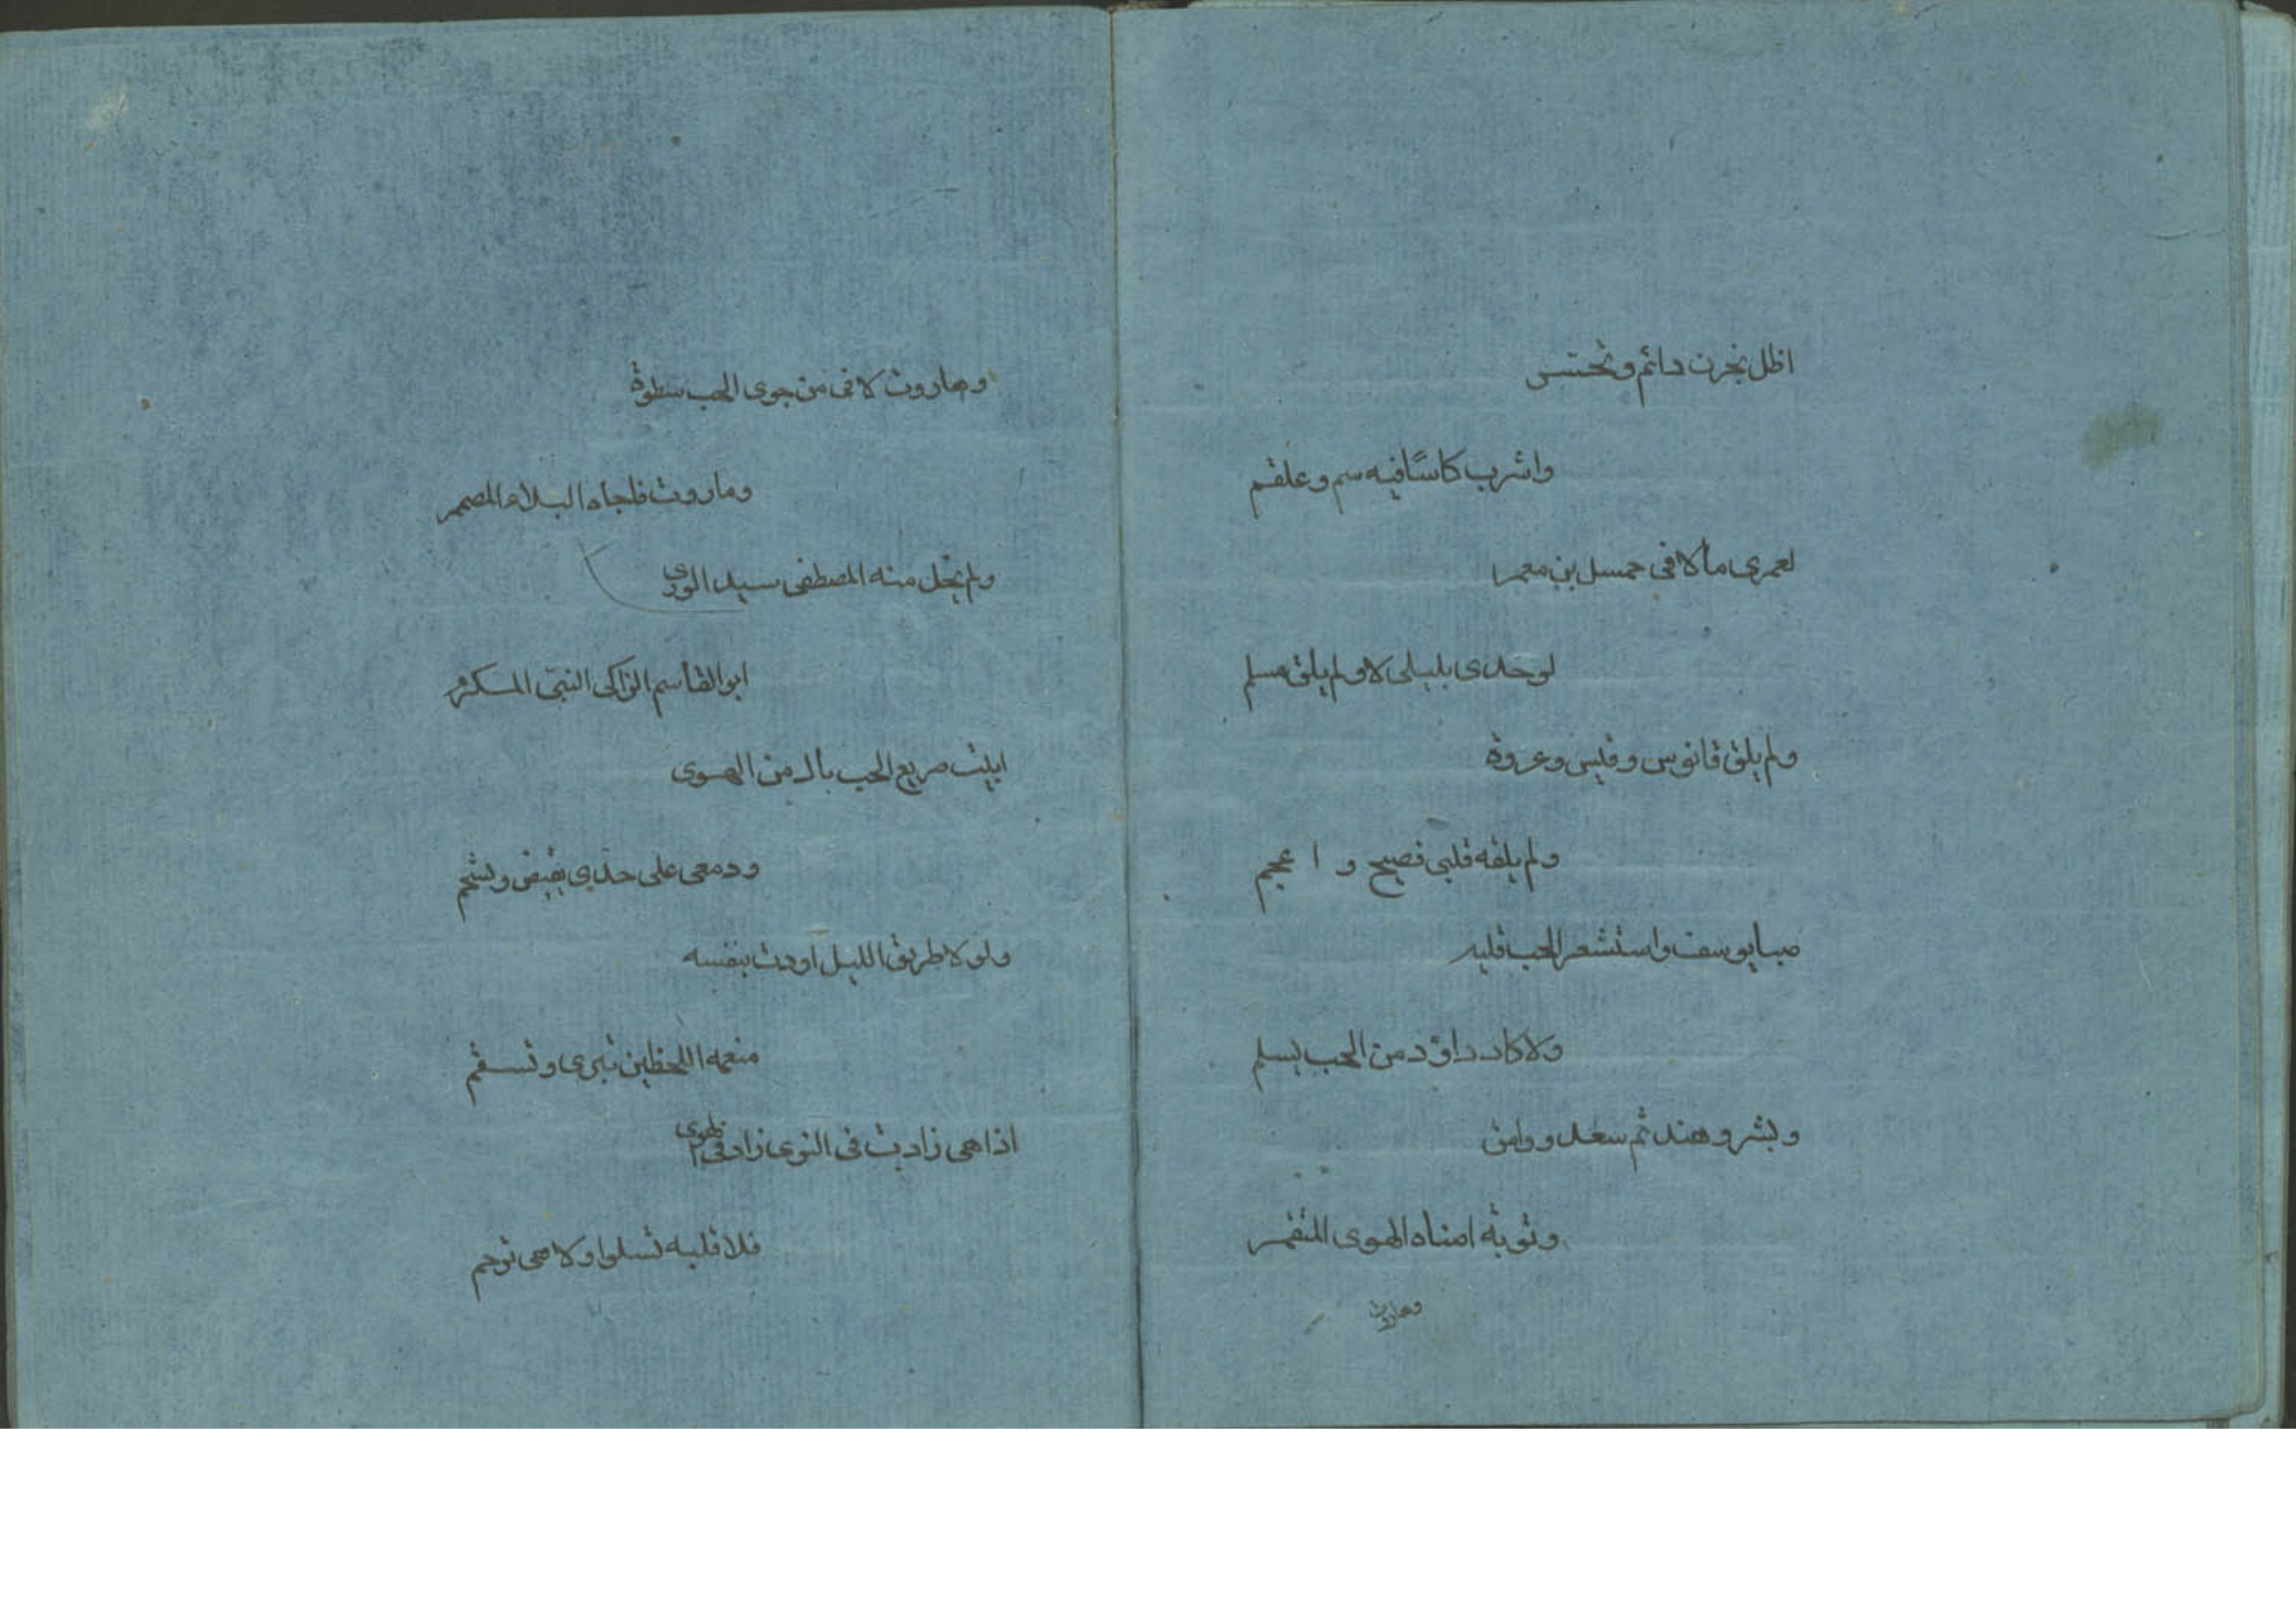 اظل بحزن دائم وتحسس
واشرب كاسًا فيه سم وعلقم
لعمرى ما لاقى جمسل بن معمرا
لوحدى بليلى لا ولم يلق مسلم
ولم يلق قانوس وقيس وعروة
ولم يلقه قلبى فصيح و ا عجم
صبا يوسف واستشعر الحب قلبه
ولا كاد داؤد من الحب يسلم
وبشر وهند ثم سعد ووامق
وتوبة امناه الهوى المتقسم
وهاروت
وهاروت لاقى من جوى الحب سطوة
وماروت فاجاه البلاء المصمم
ولم يخل منه المصطفى سيد الورى
ابو القاسم الزاكى النبى المكرم
ابيت صريع الحب بال من الهوى
ودمعى على خدى يفيض ويسجم
ولولا طريق الليل اودت بنفسه
منعمه اللحظين تبرى وتسقم
اذا هى زادت فى النوى زاد فى الهوى
فلا قلبه تسلوا ولا هى ترحم